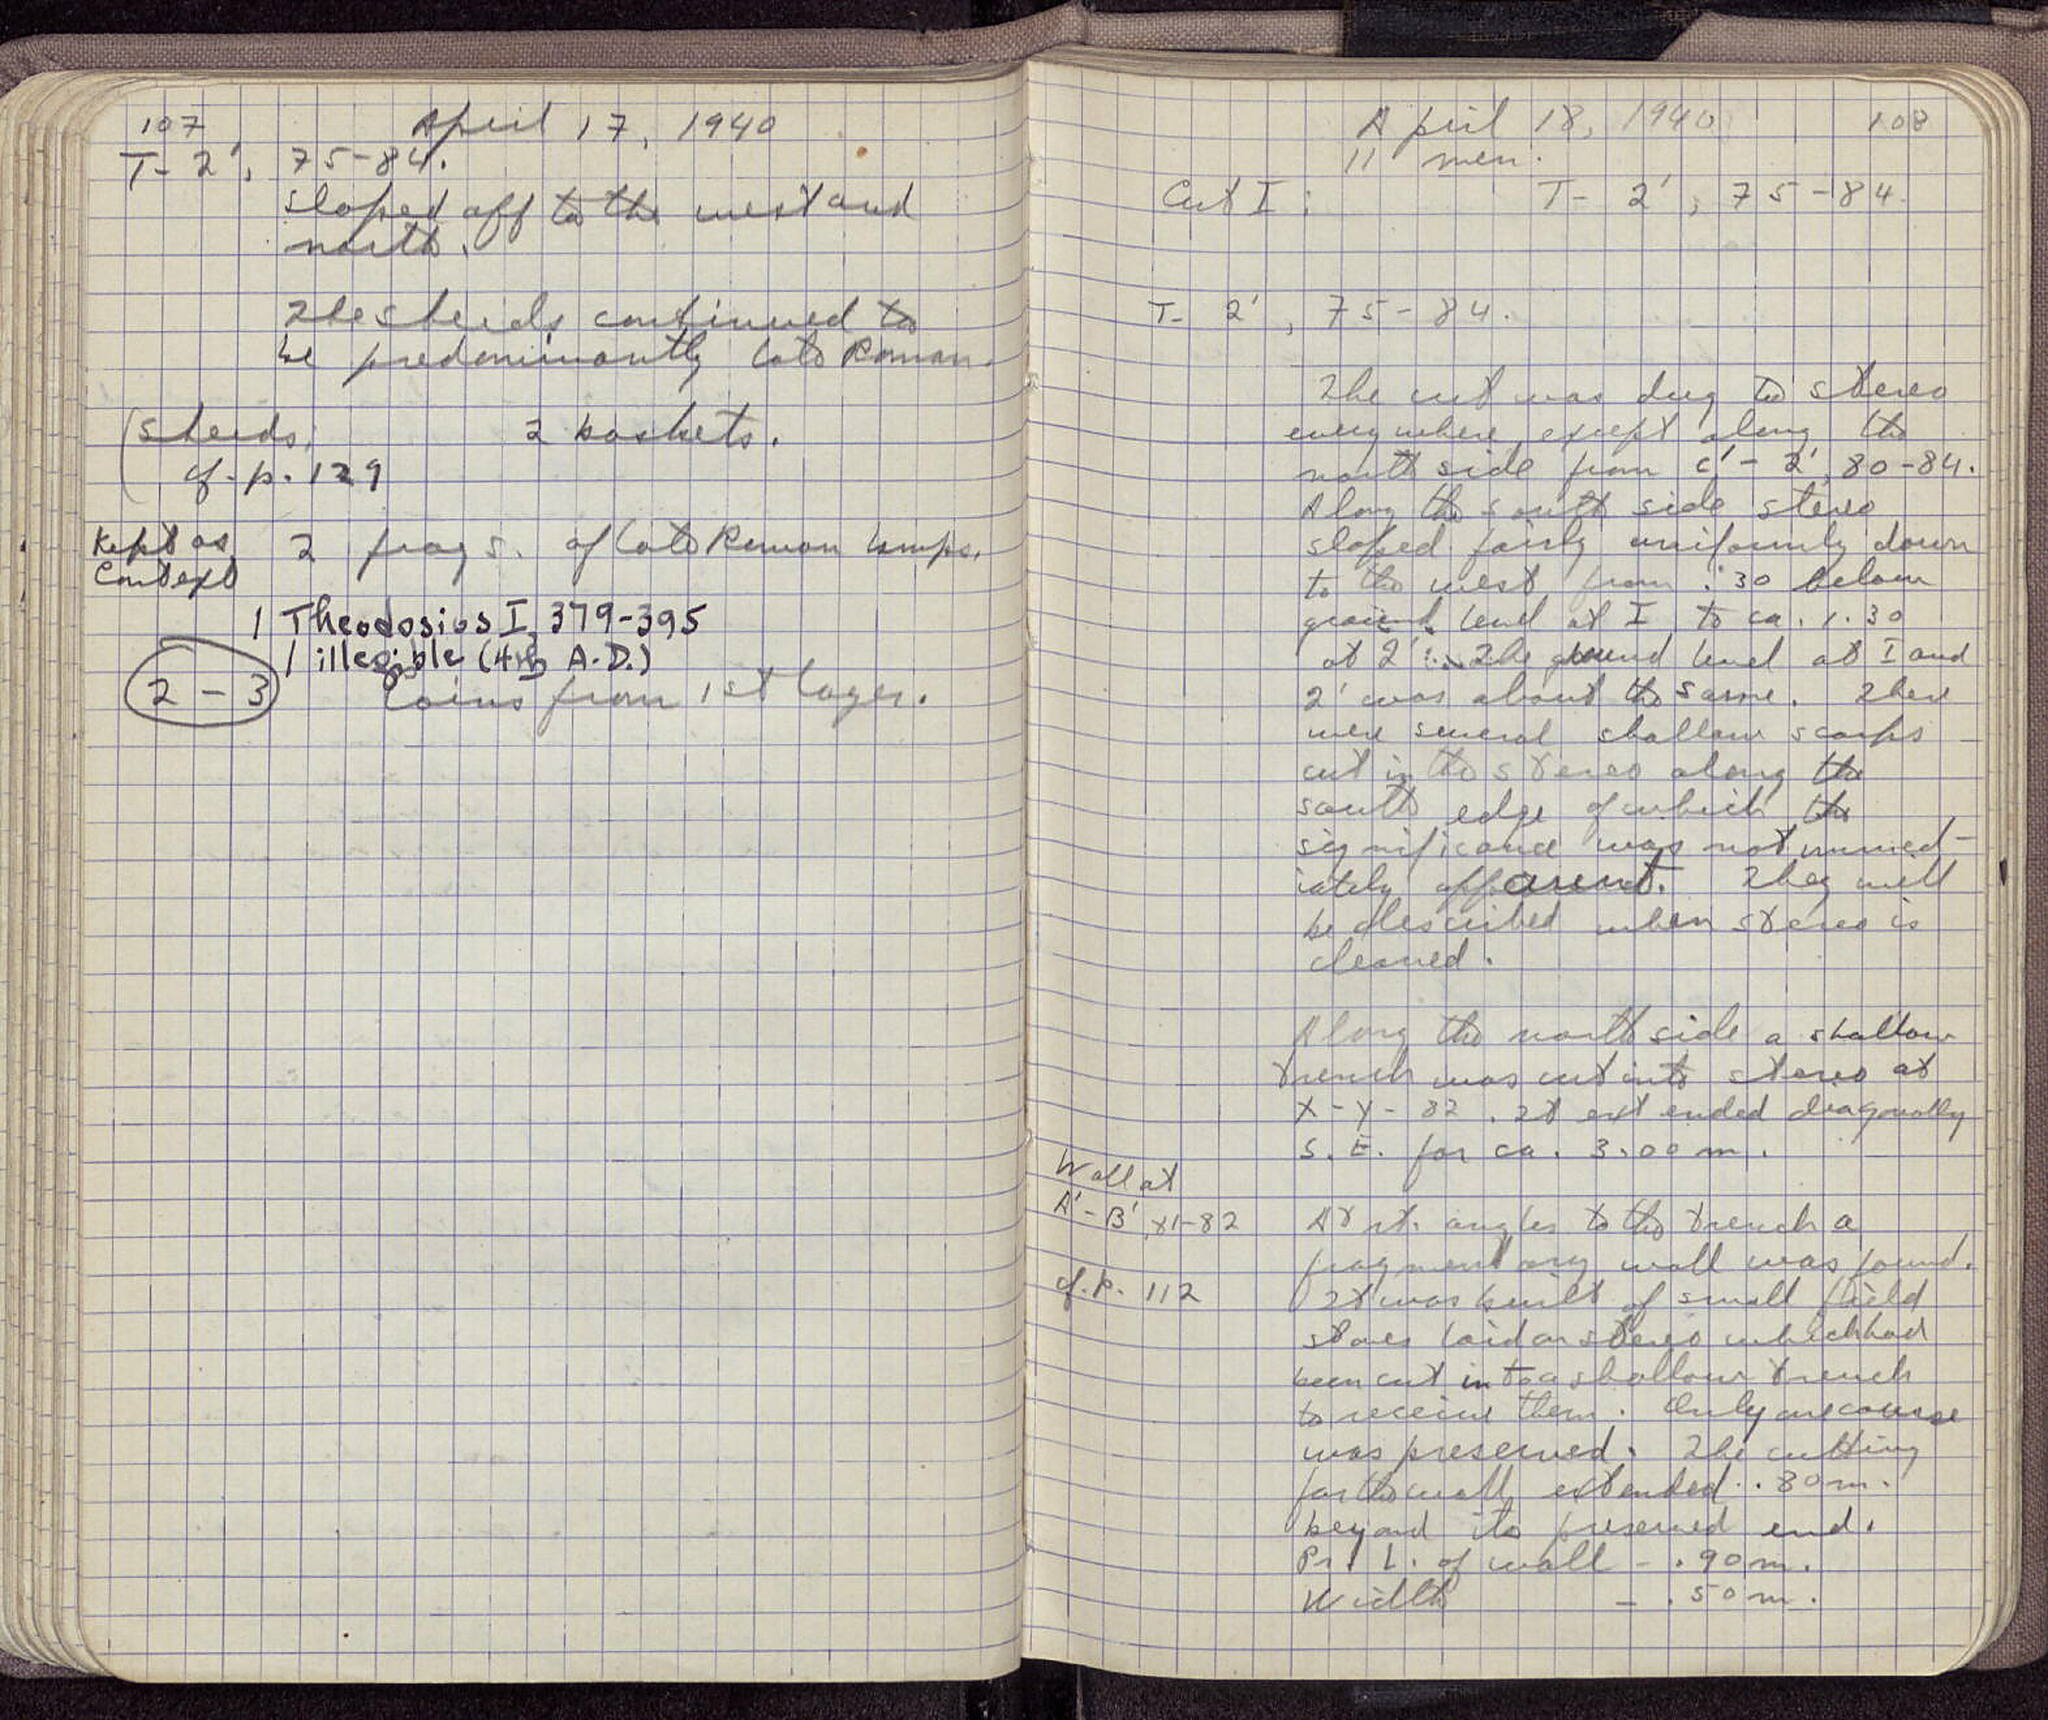 107 April 17, 1940
T - 2', 75-84.
sloped off to the west and
north.
The sherds continued to
be predominantly late Roman.
Sherds, 2 baskets.
cf. p. 129
Kept as
Context
2 frags. of late Roman lamps.
1 Theodosius I, 379-395
1 illegible (4th A.D.)
2 - 3 Coins from 1st layer.
April 18, 1940 108
11 men.
Cut I: T - 2', 75-84.
T - 2', 75-84.
The cut was dug to stereo
everywhere, except along the
north side from C' - 2', 80-84.
Along the south side stereo
sloped fairly uniformly down
to the west from .30 below
ground level at I to ca. 1.30
at 2'. The ground level at I and
2' was about the same. There
were several shallow scarps
cut in the stereo along the
south edge of which the
significance was not immed-
iately apparent. They will
be described when stereo is
cleaned.
Along the north side a shallow
trench was cut into stereo at
X - Y - 82. It extended diagonally
S.E. for ca. 3.00 m.
Wall at
A' - B', 81-82
cf. p. 112
At rt. angles to the trench a
fragmentary wall was found.
It was built of small field
stones laid on stereo which had
been cut into a shallow trench
to receive them. Only one course
was preserved. The cutting
for the wall extended .80 m.
beyond its preserved end.
Pr. L. of wall - .90 m.
Width - .50 m.